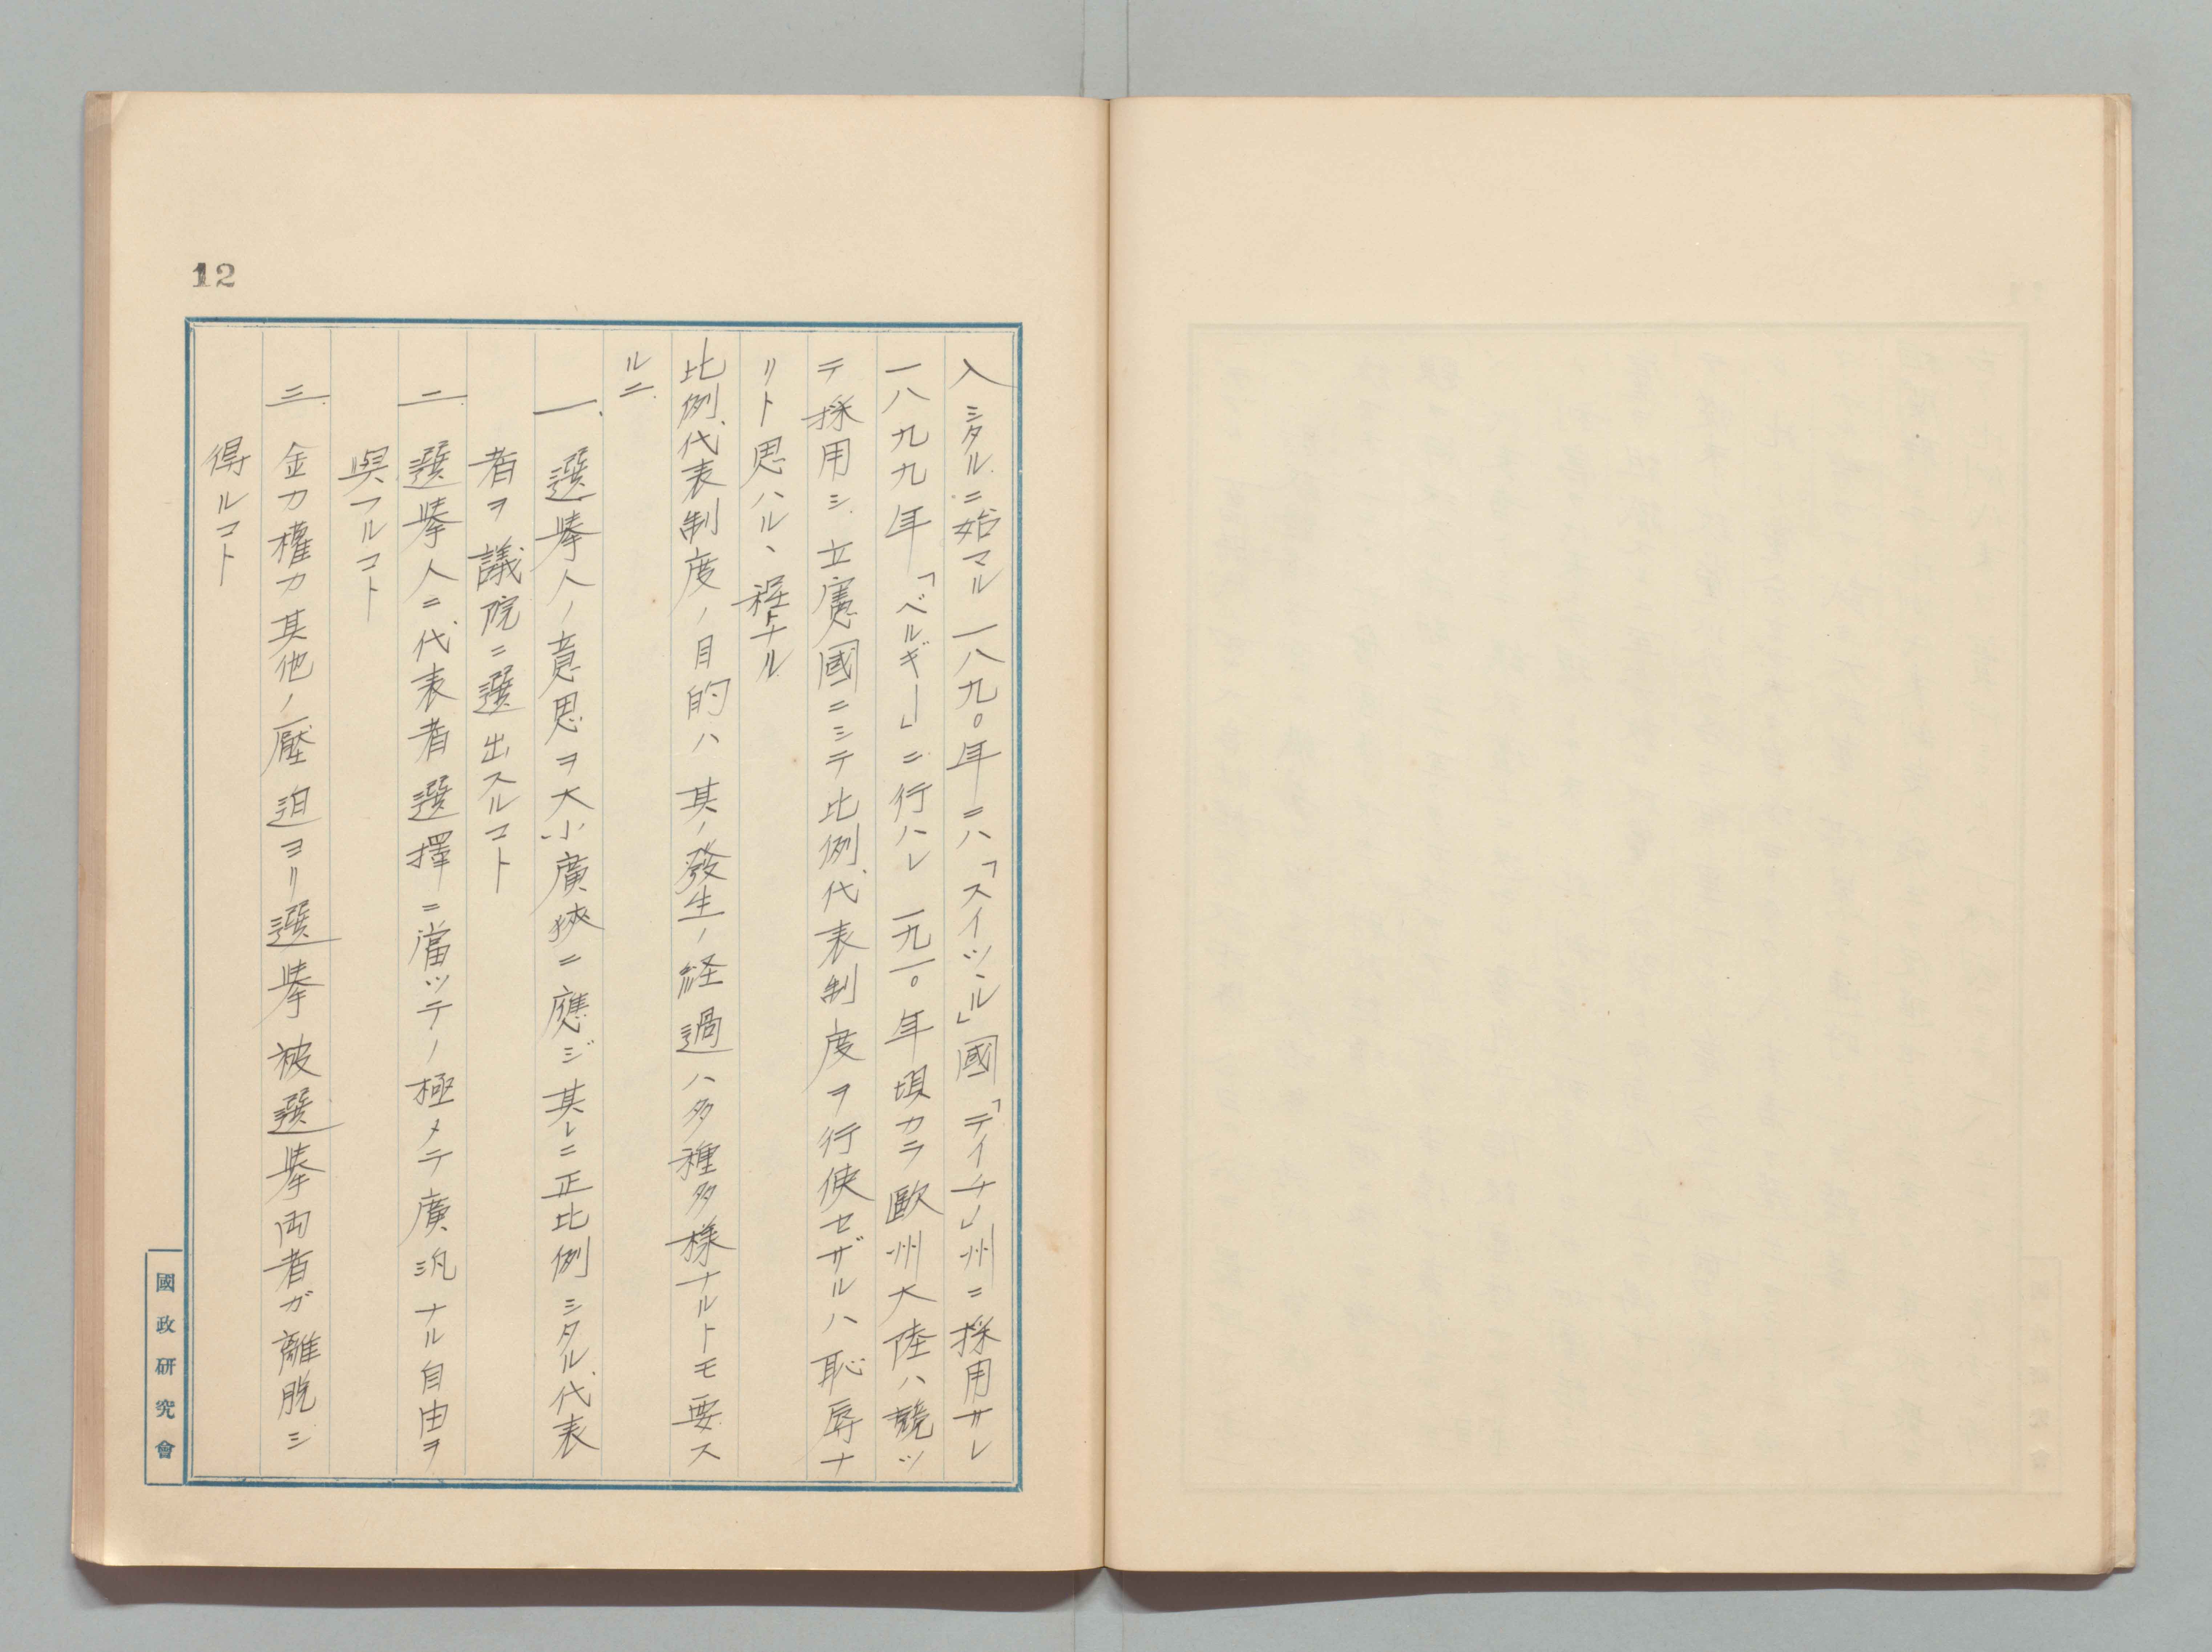 12
入シタルニ始マル一八九〇年ニハ「スイツル」國「テイチノ」州ニ採用サレ
一八九九年「ベルギー」ニ行ハレ一九一〇年頃カラ歐州大陸ハ競ッ
テ採用シ立憲國ニシテ比例代表制度ヲ行使セザルハ恥辱ナ
リト思ハルヽ程トナル
比例代表制度ノ目的ハ其ノ發生ノ経過ハ多種多様ナルトモ要ス
ルニ
一、選挙人ノ意思ヲ大小廣狹ニ應ジ其レニ正比例シタル代表
者ヲ議院ニ選出スルコト
二、選挙人ニ代表者選擇ニ當ッテノ極メテ廣汎ナル自由ヲ
與フルコト
三、金力權力其他ノ壓迫ヨリ選挙被選挙両者ガ離脱シ
得ルコト
國政研究會